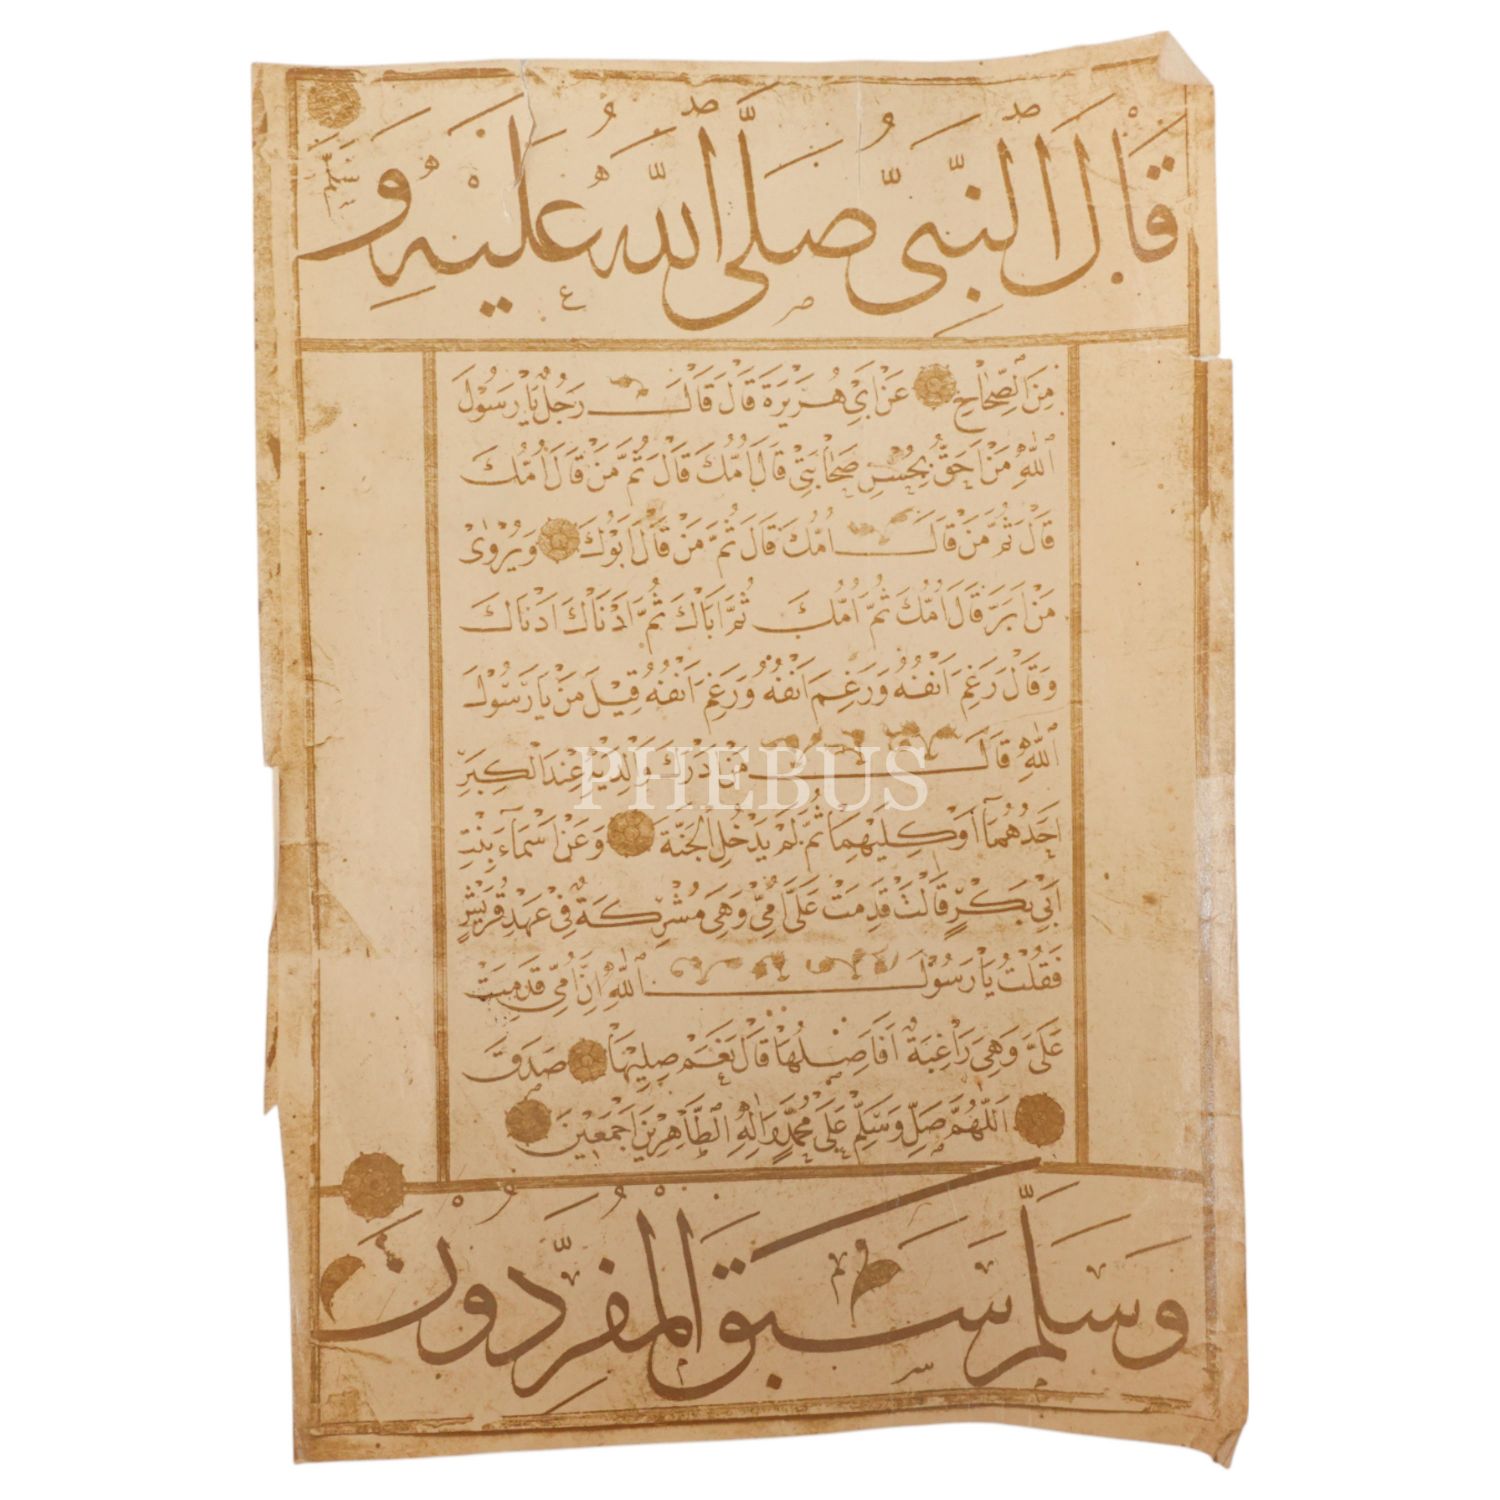 قَالَ النَّبِيُّ صَلَّى اللّٰهُ عَلَيْهِ وَ
مِنَ الصِّحَاحِ عَنْ اَبِي هُرَيْرَةَ قَالَ قَالَ رَجُلٌ يَا رَسُولَ
اللّٰهِ مَنْ اَحَقُّ بِحُسْنِ صَحَابَتِي قَالَ اُمُّكَ قَالَ ثُمَّ مَنْ قَالَ اُمُّكَ
قَالَ ثُمَّ مَنْ قَالَ اُمُّكَ قَالَ ثُمَّ مَنْ قَالَ اَبُوكَ وَيُرْوٰى
مَنْ اَبَرُّ قَالَ اُمُّكَ ثُمَّ اُمُّكَ ثُمَّ اَبَاكَ ثُمَّ اَدْنَاكَ اَدْنَاكَ
وَقَالَ رَغِمَ اَنْفُهُ وَرَغِمَ اَنْفُهُ وَرَغِمَ اَنْفُهُ قِيلَ مَنْ يَا رَسُولَ
اللّٰهِ قَالَ مَنْ اَدْرَكَ وَالِدَيْهِ عِنْدَ الْكِبَرِ
اَحَدُهُمَا اَوْ كِلَيْهِمَا ثُمَّ لَمْ يَدْخُلِ الْجَنَّةَ وَعَنْ اَسْمَاءَ بِنْتِ
اَبِي بَكْرٍ قَالَتْ قَدِمَتْ عَلَيَّ اُمِّي وَهِيَ مُشْرِكَةٌ فِي عَهْدِ قُرَيْشٍ
فَقُلْتُ يَا رَسُولَ اللّٰهِ اِنَّ اُمِّي قَدِمَتْ
عَلَيَّ وَهِيَ رَاغِبَةٌ اَفَاَصِلُهَا قَالَ نَعَمْ صِلِيهَا صَدَقَ
اَللّٰهُمَّ صَلِّ وَسَلِّمْ عَلَى مُحَمَّدٍ وَاٰلِهِ الطَّاهِرِينَ اَجْمَعِينَ
وَسَلَّمَ سَبَقَ الْمُفَرِّدُونَ
PHEBUS